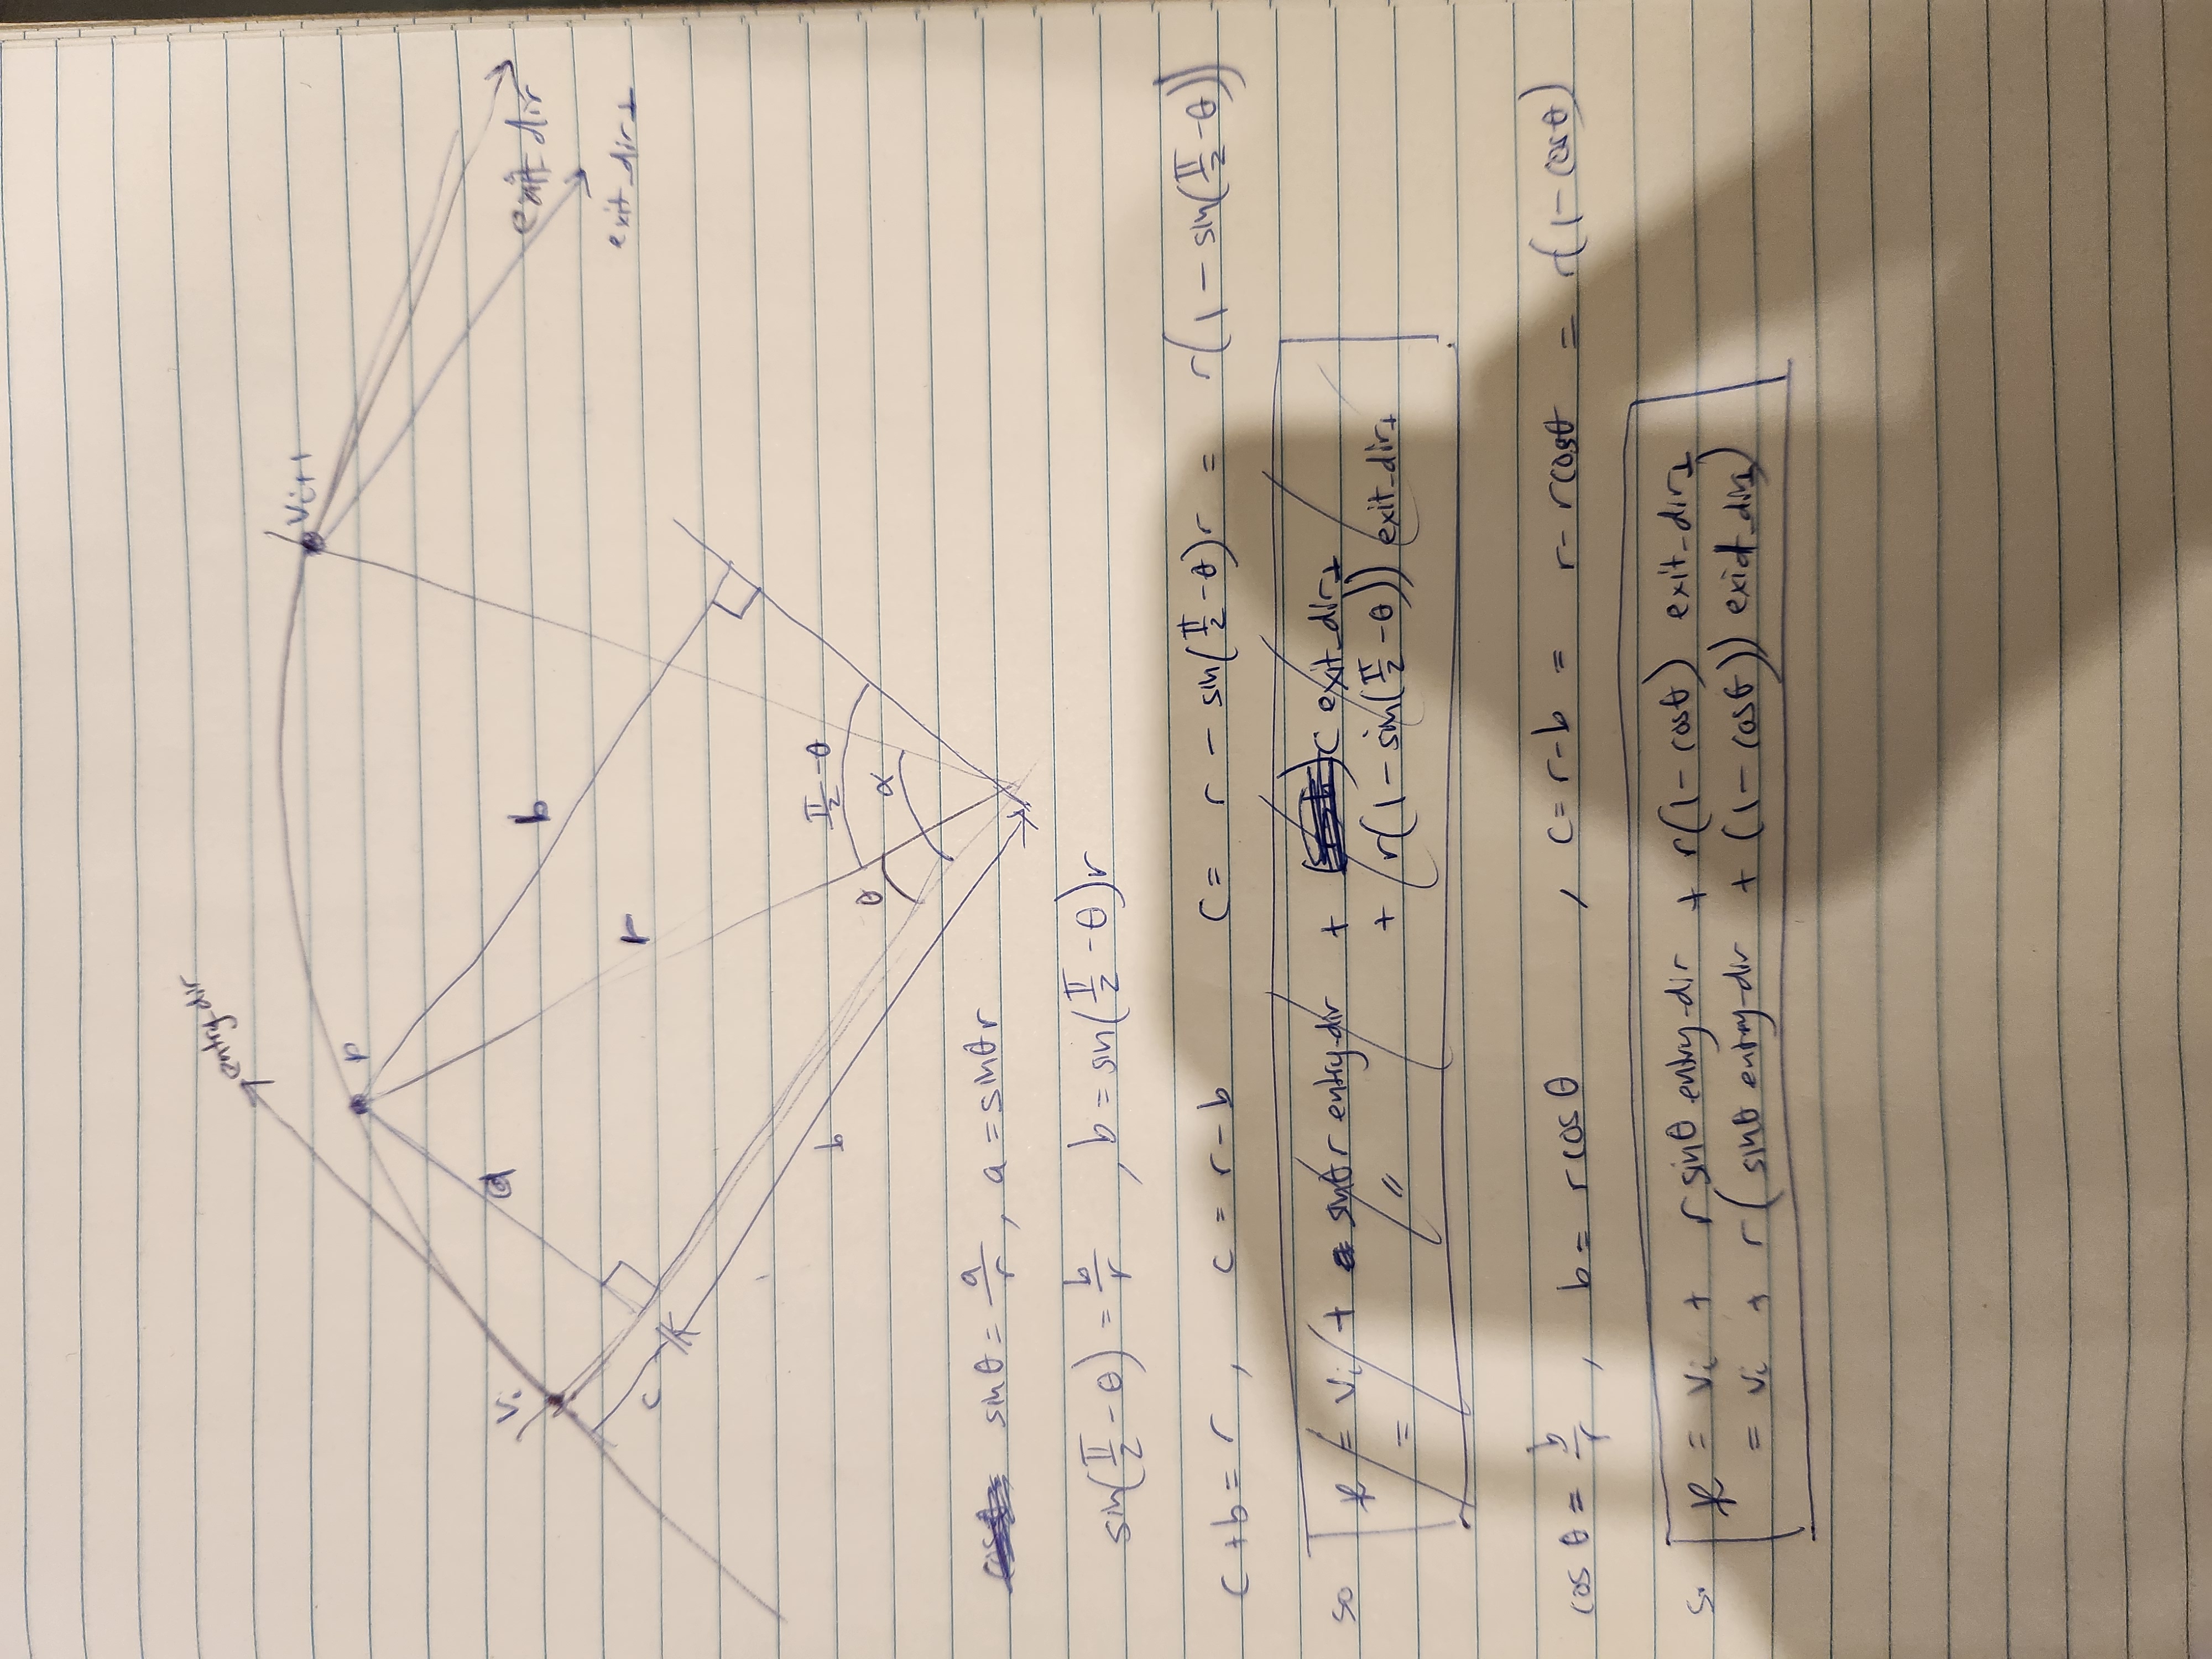 entry_dir
Vi+1
p
Vi
a
b
exit_dir
exit_dir⊥
r
c
b
π/2 - θ
θ
α
sinθ = a/r , a = sinθr
sin(π/2 - θ) = b/r , b = sin(π/2 - θ)r
c + b = r , c = r - b c = r - sin(π/2 - θ)r = r(1 - sin(π/2 - θ))
so p = Vi + sinθr entry-dir + c exit_dir⊥
= " + r(1 - sin(π/2 - θ)) exit_dir⊥
cos θ = b/r , b = r cos θ , c = r - b = r - rcosθ = r(1 - cosθ)
so p = Vi + r sinθ entry-dir + r(1 - cosθ) exit_dir⊥
= Vi + r(sinθ entry-dir + (1 - cosθ)) exit_dir⊥)